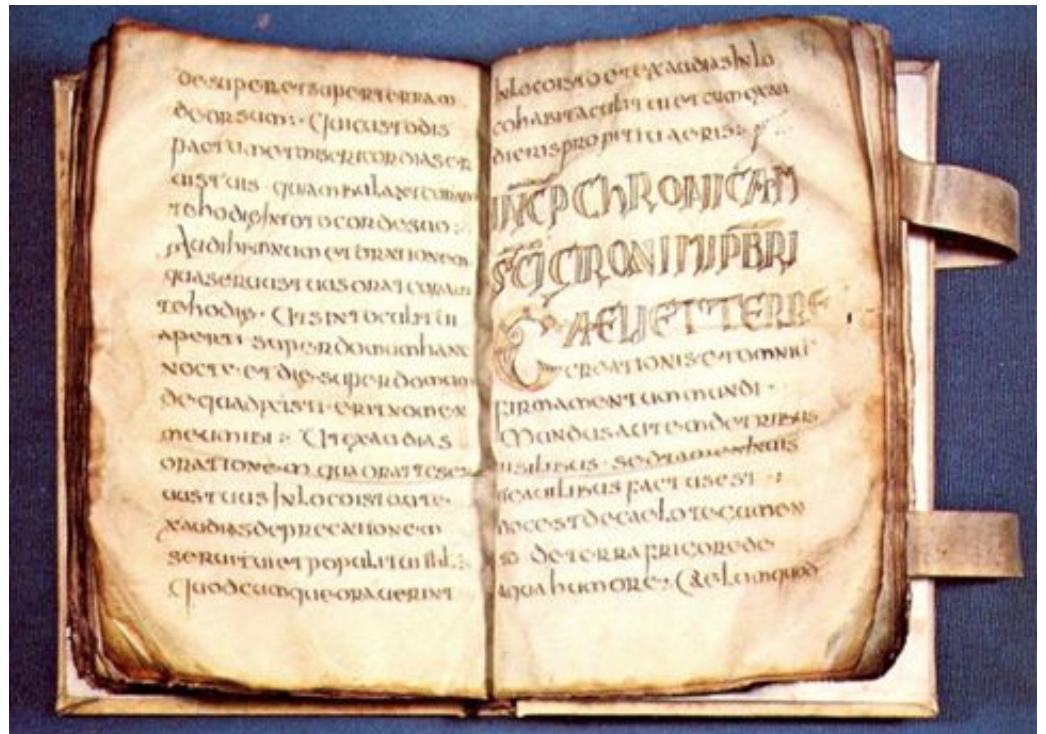 desuper et super terram
deorsum: Qui custodis
pactum et misericordias ser
uis tuis quiambulant coram
te hodie in toto corde suo:
Audi hymnum et orationem
qua seruus tuus orat coram
te hodie. Ut sint oculi tui
aperti super domum hanc
nocte et die super domum
de qua dixisti erit nomen
meum ibi: Ut exaudias
orationem qua orat te ser
uus tuus in loco isto ut e
xaudias deprecationem
serui tui et populi tui ihl:
Quodcumque orauerint
in loco isto et exaudias in lo
co habitaculi tui et cum exau
dieris propitiaueris:
INCP CHRONICAM
SCI GIRONIMI PBRI
CAELI ET TERRE
creationis et omni
firmamentum mundi
Mundus autem de tribus
uisilibus
factus est
hoc est de caelo
de terra fricore de
aqua humore. Caelum quod